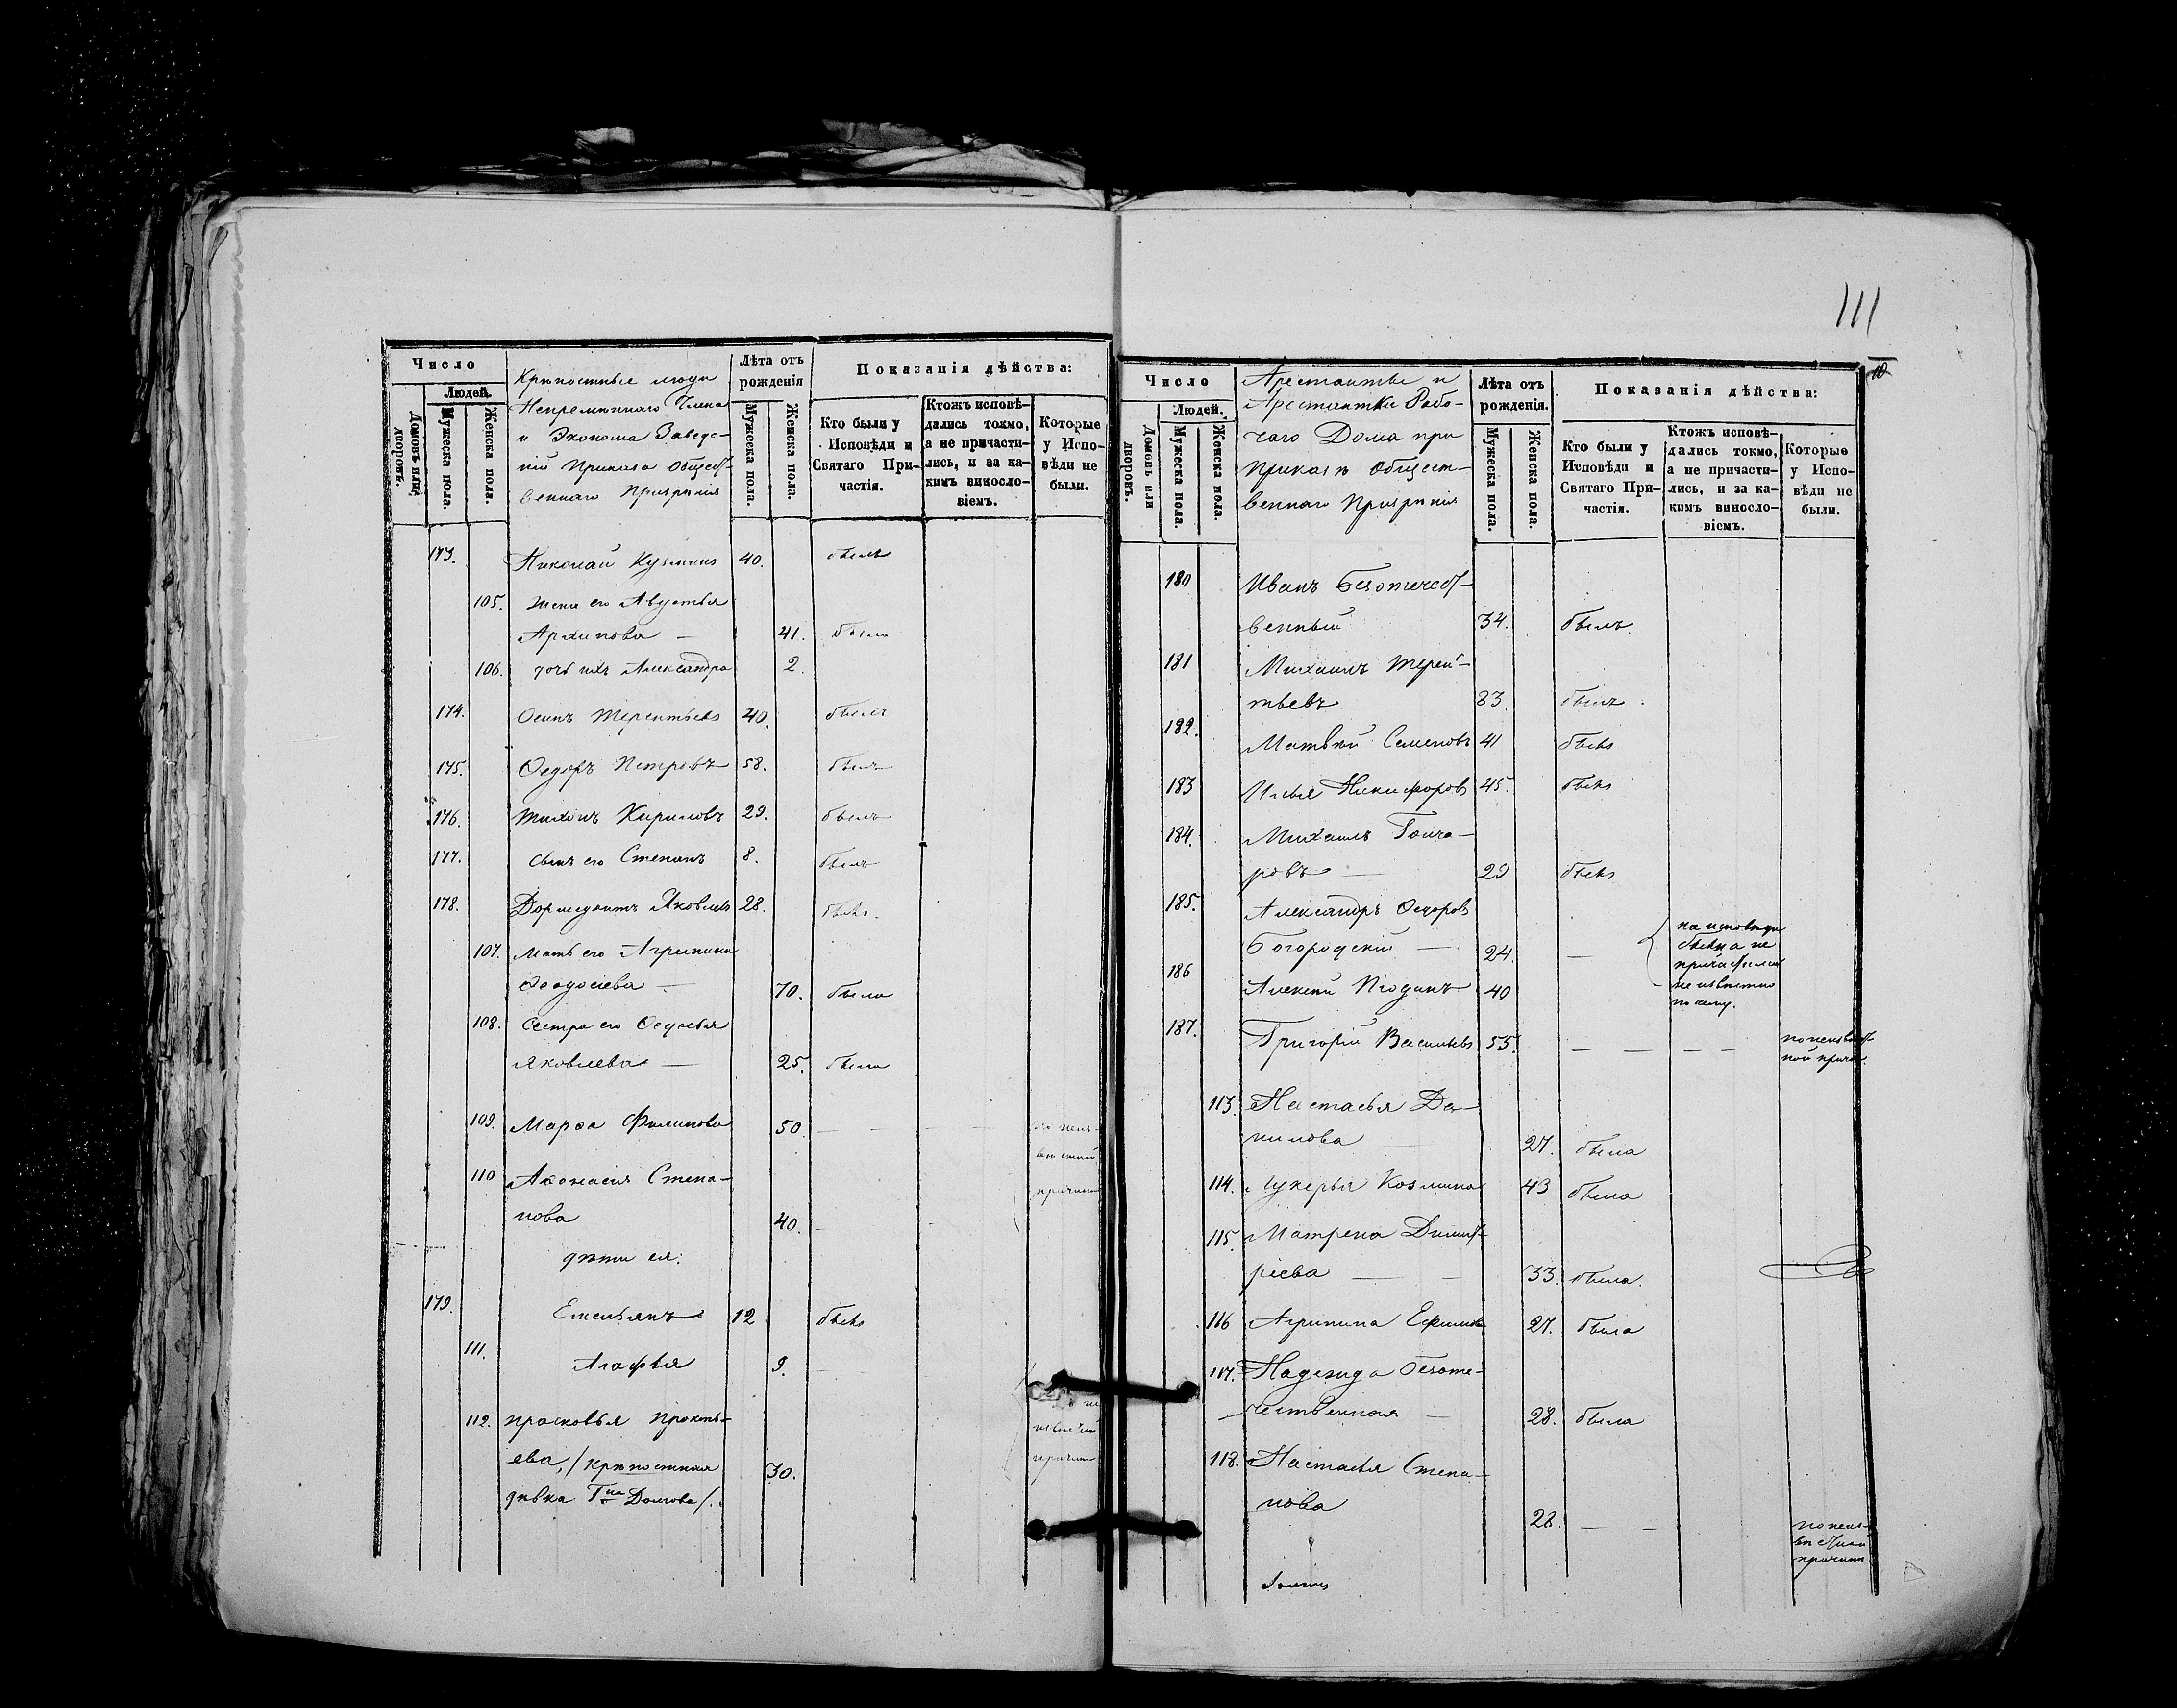 Число
Людей.
Домовъ или дворовъ.
Мужеска пола.
Женска пола.
Крѣпостные люди
Непремѣннаго Члена
и Эконома Заведе-
ній Приказа Общест-
веннаго Призрѣнія
Лѣта отъ рожденія
Мужеска пола.
Женска пола.
Показанія дѣйства:
Кто были у Исповѣди и Святаго Причастія.
Ктожъ исповѣдались токмо, а не причастились, и за какимъ винословіемъ.
Которые у Исповѣди не были.
173. Николай Кузминъ 40. былъ
105. жена его Авдотья
Архипова — 41. была
106. дочь ихъ Александра 2.
174. Осипъ Терентьевъ 40. былъ
175. Ѳедоръ Петровъ 58. былъ
176. Тихонъ Кириловъ 29. былъ
177. сынъ его Степанъ 8. былъ
178. Дормидонтъ Яковлевъ 28. былъ.
107. мать его Агрипина
Ѳеодосіева — 70. была
108. сестра его Ѳедосья
Яковлева — 25. была
109. Марѳа Филипова 50. — — — по неиз-
вѣстной
110 Аѳонасія Степа-
причинѣ
нова 40. —
дѣти ея:
179. Емельянъ 12 былъ
111. Агафья 9. —
112. Прасковья Прокть-
ева, /крѣпостная 30.
дѣвка Гна Долгова/.
извѣстной
причинѣ
111
Число
Людей.
Домовъ или дворовъ.
Мужеска пола.
Женска пола.
Арестанты и
Арестантки Рабо-
чаго Дома при
Приказѣ Общест-
веннаго Призрѣнія
Лѣта отъ рожденія.
Мужеска пола.
Женска пола.
Показанія дѣйства:
Кто были у Исповѣди и Святаго Причастія.
Ктожъ исповѣдались токмо, а не причастились, и за какимъ винословіемъ.
Которые у Исповѣди не были.
180 Иванъ Безотечест-
венный 34. былъ.
181 Михаилъ Терен-
тьевъ 83. былъ.
182. Матвѣй Семеновъ 41 былъ
183 Илья Никифоровъ 45. былъ
184. Михаилъ Гонча-
ровъ — 29 былъ
185. Александръ Ѳедоровъ
Богородскій — 24. — на исповѣди
были а не
причастились
186 Алексѣй Юдинъ 40 неизвѣстно
почему.
187. Григорій Васильевъ 55. — — — — по неизвѣст-
ной причи.
113. Настасья Да-
нилова — 27. была
114. Лукерья Козмина 43 была
115. Матрена Димит-
ріева — — 33. была.
116 Агрипина Ефимова 27. была
117. Надежда Безоте-
чественная — 28. была
118. Настасья Степа-
нова 28. — — по неиз-
вѣстной
причинѣ